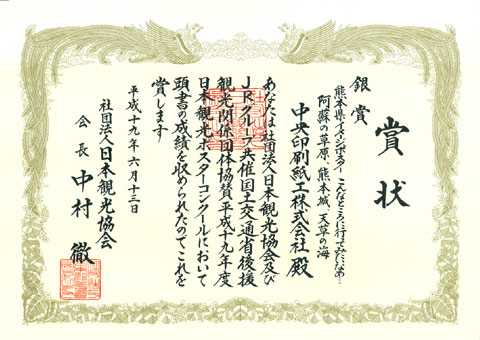 賞状
銀賞
熊本県イメージポスター こんなところに行ってみたいなあ…
阿蘇の草原、熊本城、天草の海
中央印刷紙工株式会社 殿
あなたは社団法人日本観光協会及び
JRグループ共催国土交通省後援
観光関係団体協賛平成十九年度
日本観光ポスターコンクールにおいて
頭書の成績を収められたのでこれを
賞します
平成十九年六月十三日
社団法人日本観光協会
会長 中村 徹